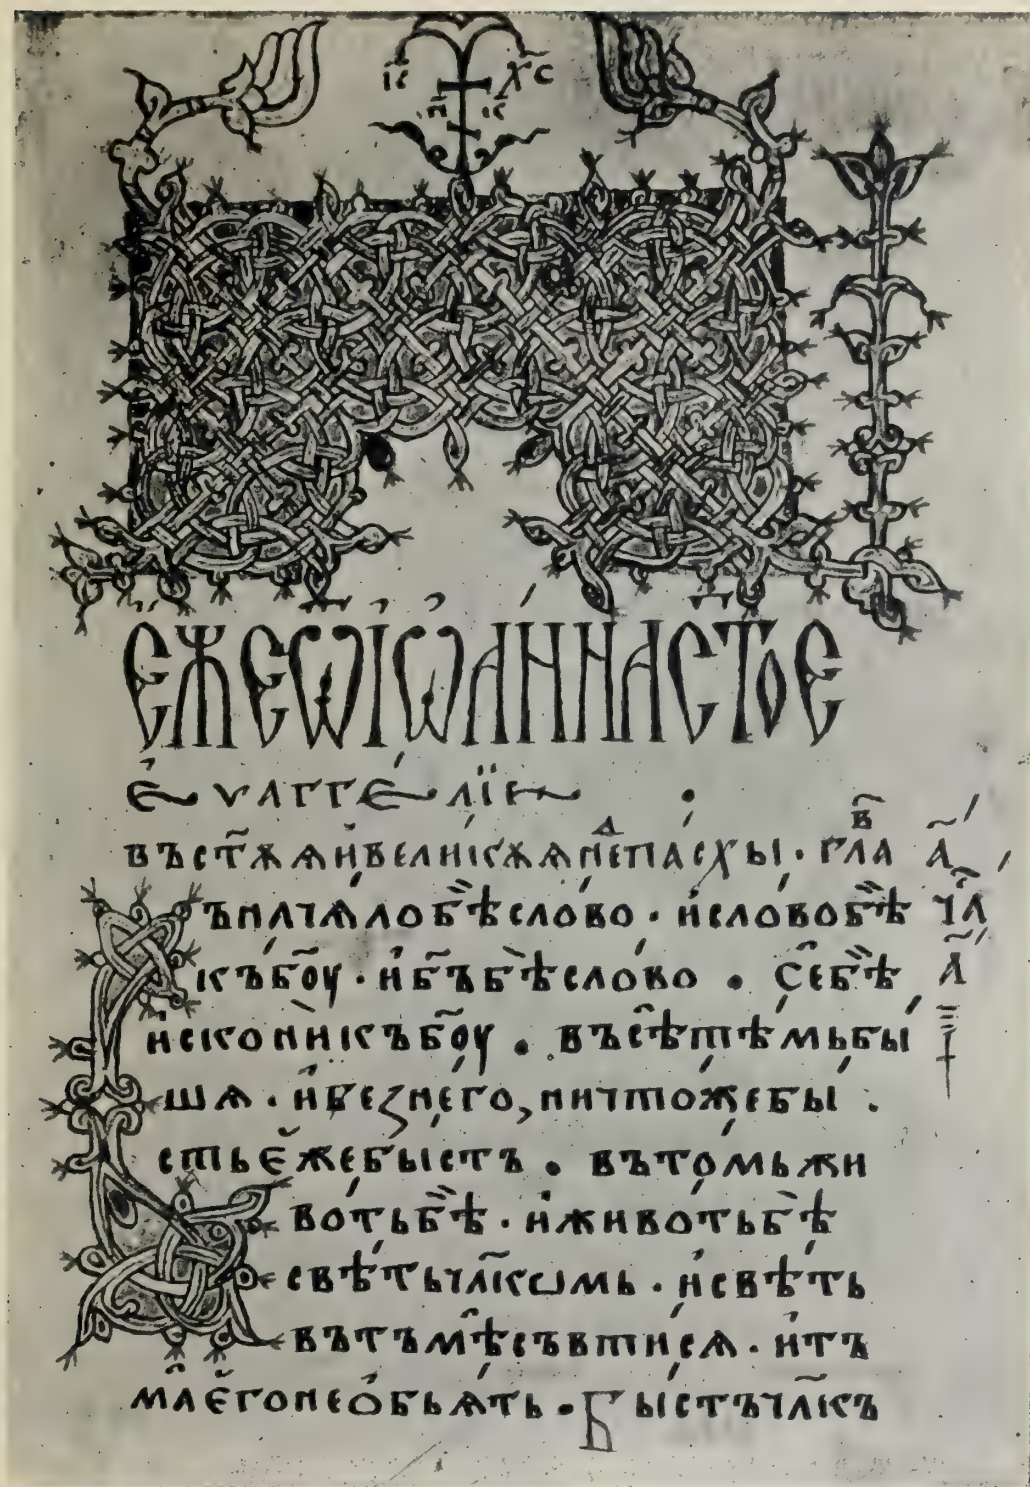 іс хс
н к
еже ѿ іѡанна стое
еѵаггеліе
въ стѫѧ и великѫѧ нед пасхы. гла в
а
ънѧчѧло бѣ слово · и слово бѣ
чл
къ боу · и бъ бѣ слово · се бѣ
а
искони къ боу · въсѣ тѣмь бы
шѧ · и без него, ничтоже бы
сть еже быстъ · въ томь жи
вотъ бѣ · и животь бѣ
свѣть члкѡмь · и свѣть
въ тъмѣ съвтисѧ · и тъ
мл его не обьѧть · Бысть члкъ